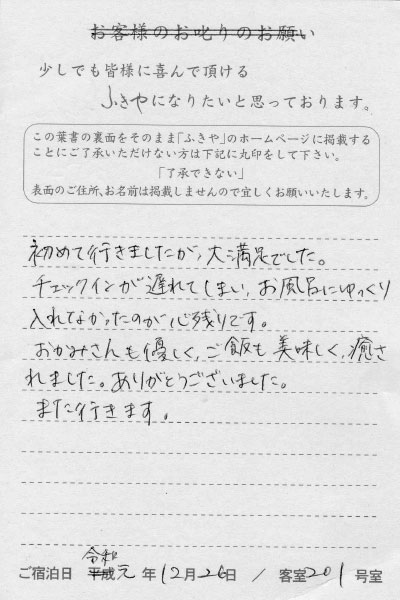 お客様のお叱りのお願い
少しでも皆様に喜んで頂ける
ふきやになりたいと思っております。
この葉書の裏面をそのまま「ふきや」のホームページに掲載する
ことにご了承いただけない方は下記に丸印をして下さい。
「了承できない」
表面のご住所、お名前は掲載しませんので宜しくお願いいたします。
初めて行きましたが、大満足でした。
チェックインが遅れてしまい、お風呂にゆっくり
入れてなかったのが心残りです。
おかみさんも優しく、ご飯も美味しく、癒さ
れました。ありがとうございました。
また行きます。
令和
ご宿泊日 平成元年12月26日 / 客室201号室